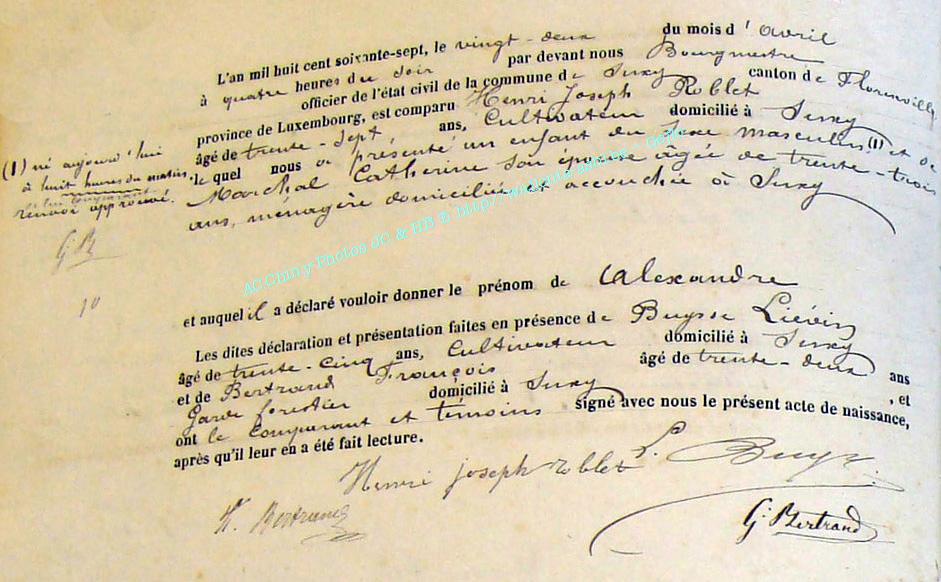 L'an mil huit cent soixante-sept, le vingt-deux du mois d'avril
à quatre heures du soir par devant nous Bourgmestre
officier de l'état civil de la commune de Suxy canton de Florenville
province de Luxembourg, est comparu Henri Joseph Roblet
âgé de trente-sept ans, Cultivateur domicilié à Suxy
lequel nous a présenté un enfant du sexe masculin (1) et de
Marchal Catherine son épouse âgée de trente-trois
ans, ménagère domiciliée et accouchée à Suxy
(1) né aujourd'hui
à huit heures du matin.
et lui comparant
renvoi approuvé.
G. B
10
AC Chiny Photos JC & HB
et auquel il a déclaré vouloir donner le prénom de Alexandre
Les dites déclaration et présentation faites en présence de Buysse Liévin
âgé de trente-cinq ans, Cultivateur domicilié à Suxy
et de Bertrand François âgé de trente-deux ans
Garde forestier domicilié à Suxy , et
ont le comparant et témoins signé avec nous le présent acte de naissance,
après qu'il leur en a été fait lecture.
Henri joseph roblet L. Buysse
Bertrand G. Bertrand